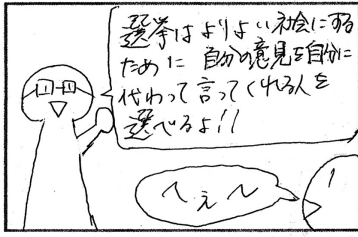 選挙はよりよい社会にする
ために 自分の意見を自分に
代わって言ってくれる人を
選べるよ!!
へぇ〜